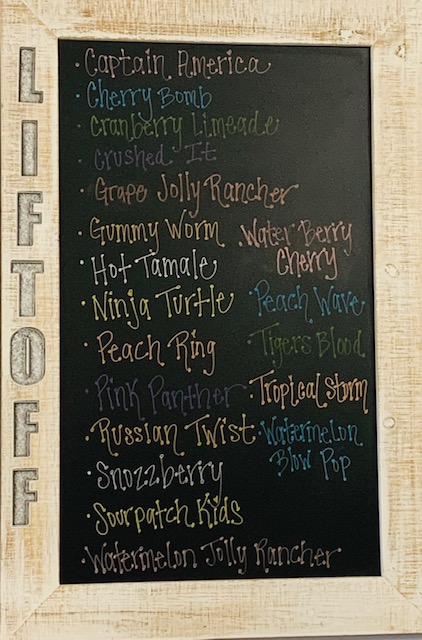 LIFTOFF
· Captain America
· Cherry Bomb
· Cranberry Limeade
· Crushed It
· Grape Jolly Rancher
· Gummy Worm
· Hot Tamale
· Ninja Turtle
· Peach Ring
· Pink Panther
· Russian Twist
· Snozzberry
· Sourpatch Kids
· Watermelon Jolly Rancher
· Water Berry
Cherry
· Peach Wave
· Tigers Blood
· Tropical Storm
· Watermelon
Blow Pop